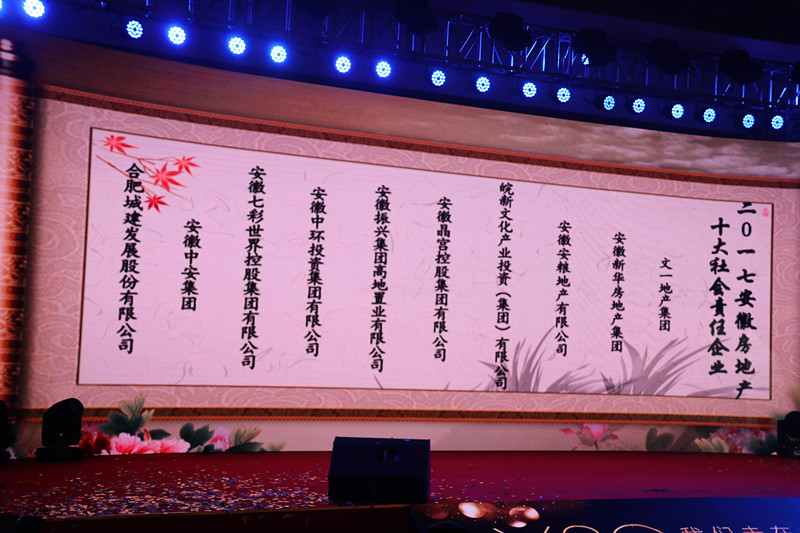 二0一七安徽房地产
十大社会责任企业
文一地产集团
安徽新华房地产集团
安徽安粮地产有限公司
皖新文化产业投资（集团）有限公司
安徽晶宫控股集团有限公司
安徽振兴集团高地置业有限公司
安徽中环投资集团有限公司
安徽七彩世界控股集团有限公司
安徽中安集团
合肥城建发展股份有限公司
我们走在